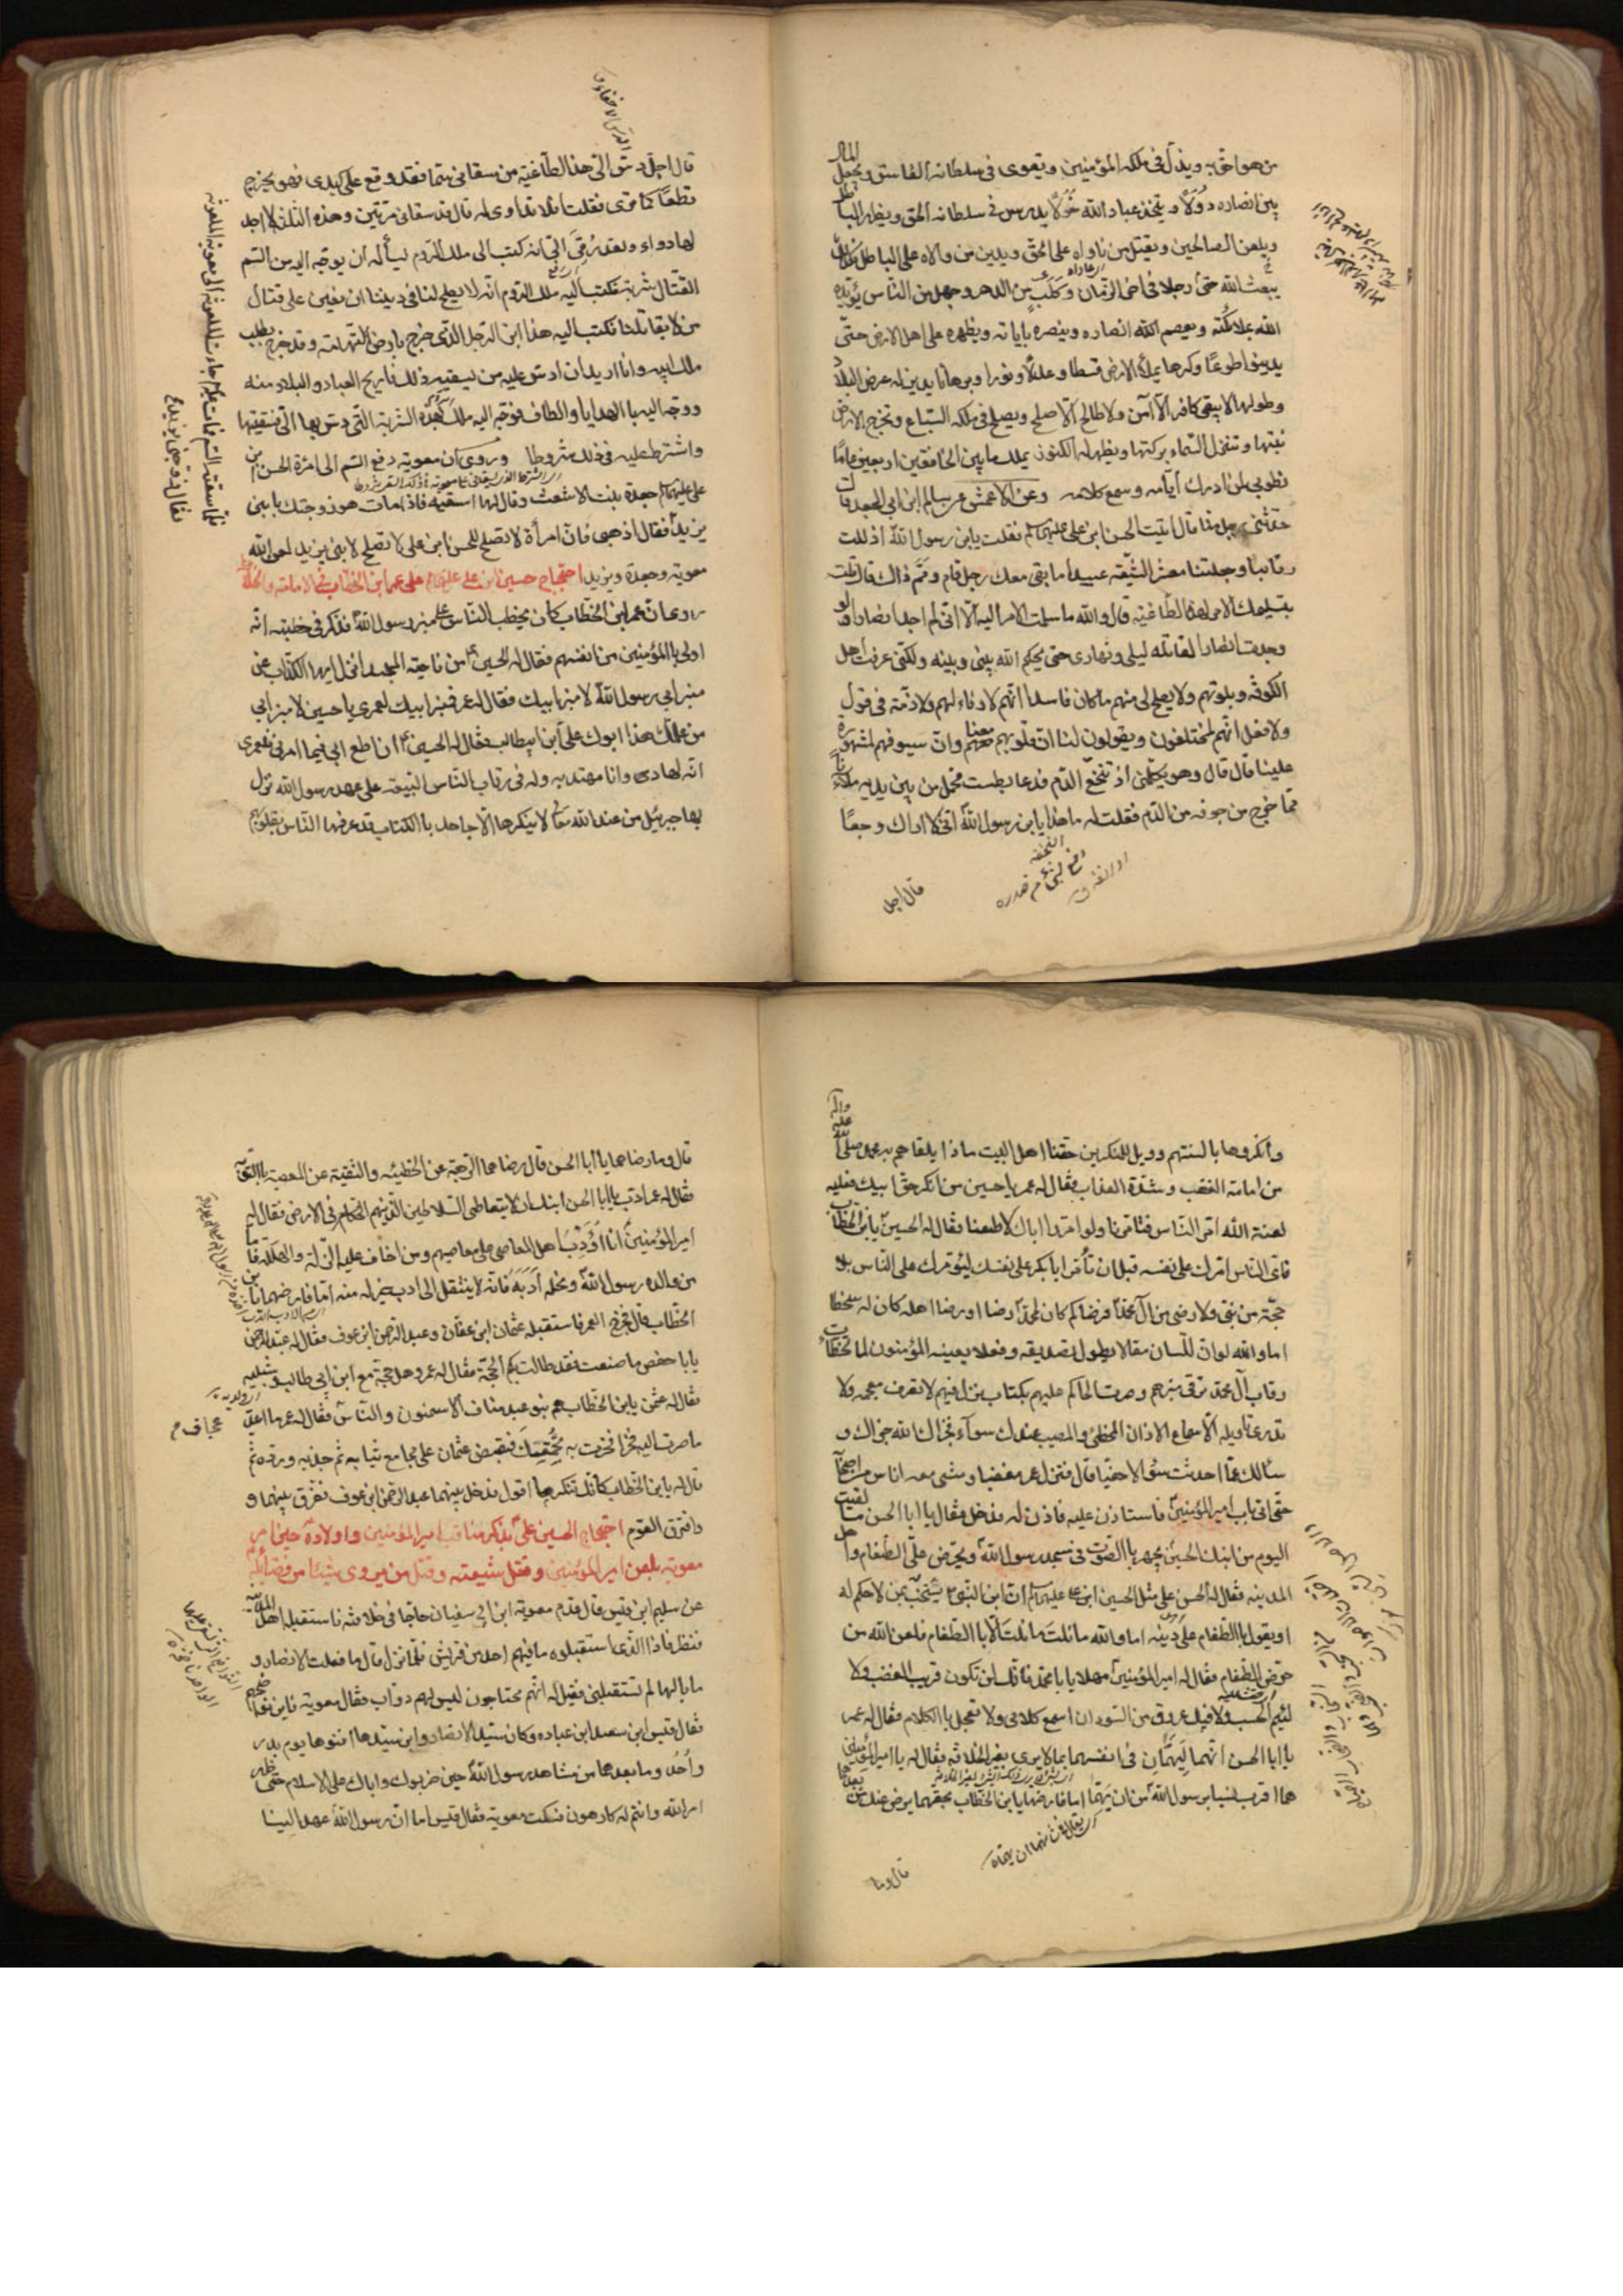 من هو احق به ويذل في ملكه المؤمنين ويقوى في سلطانه الفاسق ويجعل المال
بين انصاره دولا ويتخذ عباد الله خولا يدرس في سلطانه الحق ويظهر الباطل
ويلعن الصالحين ويقتل من ناواه على الحق ويدين من والاه على الباطل فكذلك حتى
يبعث الله رجلا في اخر الزمان وكلب من الدهر وجهل من الناس يؤيده
الله بملائكته ويعصم الله انصاره وينصره باياته ويظهره على اهل الارض حتى
يدينوا طوعا وكرها يملأ الارض قسطا وعدلا ونورا وبرهانا يدين له عرض البلاد
وطولها لا يبقى كافر الا آمن ولا طالح الا صلح ويصلح في ملكه السباع وتخرج الارض
نبتها وتنزل السماء بركتها ويظهر له الكنوز يملك ما بين الخافقين اربعين عاما
فطوبى لمن ادرك ايامه وسمع كلامه وعن الاعمش عن سالم ابن ابي الجعد قال
حدثني رجل منا قال اتيت الحسن ابن علي عليهما السلام فقلت يا بن رسول الله اذللت
رقابنا وجعلتنا معشر الشيعة عبيدا ما بقي معك رجل قام ومم ذاك قال قلت
بتسليمك الامر لهذا الطاغية قال والله ما سلمت الامر اليه الا اني لم اجد انصارا ولو
وجدت انصارا لقاتلته ليلي ونهاري حتى يحكم الله بيني وبينه ولكني عرفت اهل
الكوفة وبلوتهم ولا يصلح لي منهم ما كان فاسدا انهم لا وفاء لهم ولا ذمة في قول
ولا فعل انهم لمختلفون ويقولون لنا ان قلوبهم معنا وان سيوفهم لمشهورة
علينا قال قال وهو يكلمني اذ تنخع الدم فدعا بطست فحمل من بين يديه ملآن
مما خرج من جوفه من الدم فقلت له ما هذا يا بن رسول الله اني لاراك وجعا
قال اجل
قال اجل دس الي هذا الطاغية من سقاني سما فقد وقع على كبدي فهو يخرج
قطعا كما ترى فقلت افلا تتداوى له قال قد سقاني مرتين وهذه الثالثة لا اجد
لها دواء ولقد رقي الي انه كتب الى ملك الروم يسأله ان يوجه اليه من السم
القتال شربة فكتب اليه ملك الروم انه لا يصلح لنا في ديننا ان نعين على قتال
من لا يقاتلنا فكتب اليه هذا ابن الرجل الذي خرج بارض التهامة وقد خرج يطلب
ملك ابيه وانا اريد ان ادس عليه من يسقيه ذلك فاريح العباد والبلاد منه
ووجه اليه بالهدايا والطاف فوجه اليه ملك الروم بهذه الشربة التي دس بها الي فسقيتها
واشترط عليه في ذلك شروطا وروي ان معوية دفع السم الى امرأة الحسن بن
علي عليهما السلام جعدة بنت الاشعث وقال لها اسقيه فاذا مات هو زوجتك بابني
يزيد فقال اذهبي فان امرأة لا تصلح للحسن ابن علي لا تصلح لابني يزيد لعن الله
معوية وجعدة ويزيد احتجاج حسين ابن علي عليهما السلام على عمر ابن الخطاب في الامامة والخلافة
روي ان عمر ابن الخطاب كان يخطب الناس على منبر رسول الله فذكر في خطبته انه
اولى بالمؤمنين من انفسهم فقال له الحسين من ناحية المسجد انزل ايها الكذاب عن
منبر ابي رسول الله لا منبر ابيك فقال له عمر فمنبر ابيك لعمري يا حسين لا منبر ابي
من علمك هذا ابوك علي ابن ابيطالب فقال له الحسين ان اطع ابي فيما امرني فلعمري
انه لهادى وانا مهتد به وله في رقاب الناس البيعة على عهد رسول الله نزل
بها جبرئيل من عند الله تعالى لا ينكرها الا جاحد بالكتاب قد عرفها الناس بقلوبهم
وانكروها بالسنتهم وويل للمنكرين حقنا اهل البيت ماذا يلقاهم به محمد صلى الله عليه وآله
من ادامة الغضب وشدة العذاب فقال له عمر يا حسين من انكر حق ابيك فعليه
لعنة الله امرنا الناس فتأمرنا ولو امروا اباك لاطعنا فقال له الحسين يا بن الخطاب
فاي الناس امرك على نفسه قبل ان تأمر ابا بكر على نفسك ليؤمرك على الناس بلا
حجة من نبي ولا رضى من آل محمد فرضاكم كان لمحمد رضا او رضا اهله كان له سخطا
اما والله لو ان للسان مقالا يطول تصديقه وفعلا يعينه المؤمنون لما تخطأت
رقاب آل محمد ترقى منبرهم وصرت الحاكم عليهم بكتاب نزل فيهم لا تعرف معجمه ولا
تدري تأويله الا سماع الاذان المخطئ والمصيب عندك سوآء فجزاك الله جزاك و
سألك عما احدثت سؤالا حفيا قال فنزل عمر مغضبا ومشى معه اناس من اصحابه
حتى اتى باب امير المؤمنين فاستاذن عليه فاذن له فدخل فقال يا ابا الحسن ما لقيت
اليوم من ابنك الحسين يجهر بالصوت في مسجد رسول الله ويحرض علي الطغام واهل
المدينة فقال له الحسن على مثل الحسين ابن علي عليهما السلام ابن النبي يشخب بمن لا حكم له
او يقول بالطغام على دينه اما والله ما نلت ما نلت الا بالطغام فلعن الله من
حرض الطغام فقال له امير المؤمنين مهلا يا با محمد فانك لن تكون قريب الغضب ولا
لئيم الحسب ولا فيك عروق من السودان اسمع كلامي ولا تعجل بالكلام فقال له عمر
يا ابا الحسن انهما ليهمان في انفسهما بما لا يرى بغير الخلافة فقال له امير المؤمنين
هما اقرب نسبا برسول الله من ان يهما اما فارضهما يا بن الخطاب بحقهما يرض عنك من بعدهما
قال وما
قال وما رضاهما يا ابا الحسن قال رضاهما الرجعة عن الخطيئة والتقية عن المعصية بالتوبة
فقال له عمر ادب يا ابا الحسن ابنك ان لا يتعاطى السلاطين الذين هم الحكام في الارض فقال له
امير المؤمنين انا اؤدب اهل المعاصي على معاصيهم ومن اخاف عليه الزلة والهلكة فاما
من والده رسول الله ونحله ادبه فانه لا ينتقل الى ادب خير له منه اما فارضهما يا بن
الخطاب قال فخرج العمر فاستقبله عثمان ابن عفان وعبد الرحمن ابن عوف فقال له عبد الرحمن
يا با حفص ما صنعت فقد طالت بكم الحجة فقال له عمر وهل حجة مع ابن ابي طالب وشبليه
فقال له عثمن يا بن الخطاب هم بنو عبد مناف الاسمنون والناس عجاف فقال له عمر ما اعد
ما صرت اليه فخرا فخرت به بحمقتك فقبض عثمان على مجامع ثيابه ثم جذبه ورده ثم
قال له يا بن الخطاب كانك تنكر ما اقول فدخل بينهما عبد الرحمن ابن عوف ففرق بينهما و
وافترق القوم احتجاج الحسين علي بذكر مناقب امير المؤمنين واولاده حين امر
معوية بلعن امير المؤمنين وقتل شيعته وقتل من يروي شيئا من فضائله
عن سليم ابن قيس قال قدم معوية ابن ابي سفيان حاجا في خلافته فاستقبله اهل المدينة
فنظر فاذا الذين استقبلوه ما فيهم احد من قريش فلما نزل قال ما فعلت الانصار و
ما بالها لم تستقبلني فقيل له انهم محتاجون ليس لهم دواب فقال معوية فاين نواضحهم
فقال قيس ابن سعد ابن عباده وكان سيد الانصار وابن سيدها افنوها يوم بدر
واحد وما بعدها من مشاهد رسول الله حين ضربوك واباك على الاسلام حتى ظهر
امر الله وانتم له كارهون فسكت معوية فقال قيس اما ان رسول الله عهد الينا